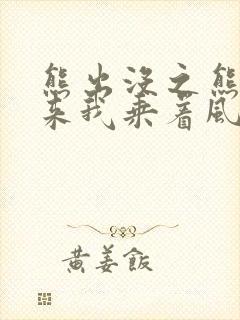 熊出没之熊
来我乘着风
黄姜飯